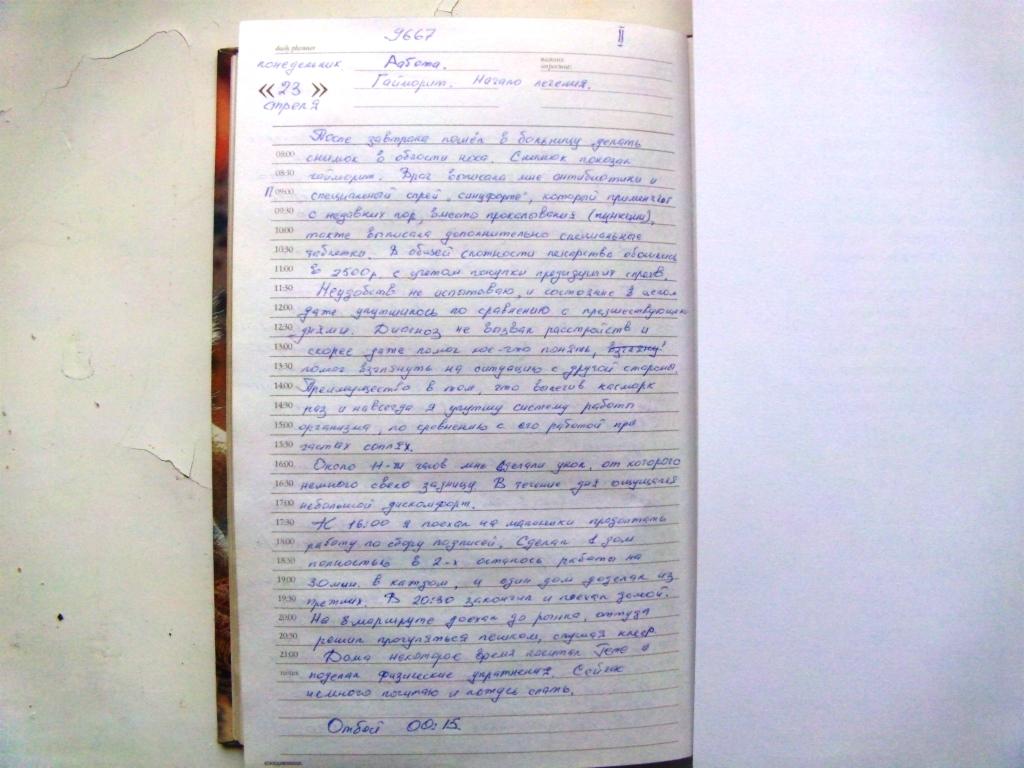 9667
II
daily planner
понедельник
Работа.
важно
срочно:
« 23 »
Гайморит. Начало лечения.
апреля
После завтрака пошёл в больницу делать
08:00 снимок в области носа. Снимок показал
08:30 гайморит. Враг выписала мне антибиотики и
П 09:00 специальный спрей "синуфорте", который применяют
09:30 с недавних пор, вместо прокалывания (пункции),
10:00 также выписала дополнительно специальные
10:30 таблетки. В общей сложности лекарства обошлись
11:00 в 2500р. с учетом покупки предидущих спреев.
11:30 Неудобств не испытываю, и состояние в целом
12:00 даже улутшилось по сравнению с предшествующими
12:30 днями. Диагноз не вызвал расстройств и
13:00 скорее даже помог кое-что понять,
13:30 помог взглянуть на ситуацию с другой стороны.
14:00 Преимущество в том, что вылечив насморк
14:30 раз и навсегда я улутшу систему работы
15:00 организма, по сравнению с его работой при
15:30 частых соплях.
16:00 Около 11-ти часов мне сделали укол, от которого
16:30 немного свело задницу. В течение дня ощущался
17:00 небольшой дискомфорт.
17:30 К 16:00 я поехал на маяковки продолжать
18:00 работу по сбору подписей. Сделал 1 дом
18:30 полностью в 2-х осталось работы на
19:00 30 мин. в каждом, и один дом доделал из
19:30 прежних. В 20:30 закончил и поехал домой.
20:00 На 8 маршруте доехал до рынка, оттуда
20:30 решил прогуляться пешком, слушая плеер.
21:00 Дома некоторое время почитал Гёте и
поделал физические упражнения. Сейчас
немного почитаю и ложусь спать.
Отбой 00:15